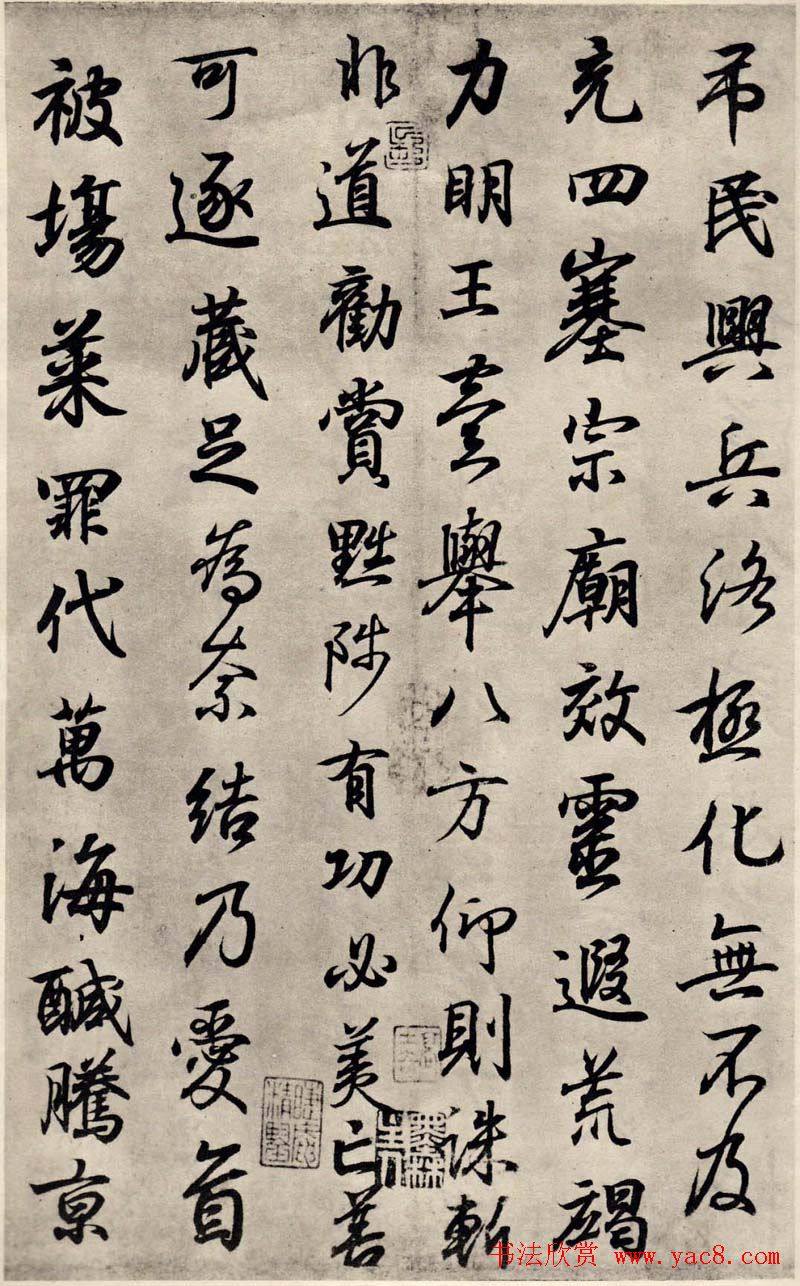 吊民興兵洛極化無不及
充四塞宗廟效靈遐荒竭
力明王壹舉八方仰則誅斬
非道勸賞黜陟有功必美亡善
可逐藏足為奈結乃愛首
被塲菜罪代萬海鹹騰京
书法欣赏 www.yac8.com